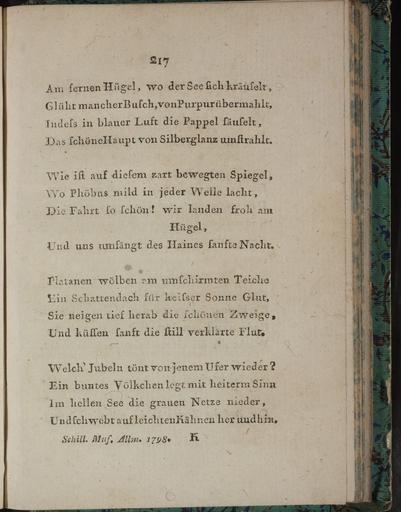 217
Am fernen Hügel, wo der See ſich kräuſelt,
Glüht mancher Buſch, von Purpur übermahlt,
Indeſs in blauer Luft die Pappel ſäuſelt,
Das ſchöne Haupt von Silberglanz umſtrahlt.
Wie iſt auf dieſem zart bewegten Spiegel,
Wo Phöbus mild in jeder Welle lacht,
Die Fahrt ſo ſchön! wir landen froh am
Hügel,
Und uns umfängt des Haines ſanfte Nacht.
Platanen wölben am umſchirmten Teiche
Ein Schattendach für heiſser Sonne Glut,
Sie neigen tief herab die ſchönen Zweige,
Und küſſen ſanft die ſtill verklärte Flut.
Welch' Jubeln tönt von jenem Ufer wieder?
Ein buntes Völkchen legt mit heiterm Sinn
Im hellen See die grauen Netze nieder,
Und ſchwebt auf leichten Kähnen her und hin.
Schill. Muſ. Allm. 1798. K